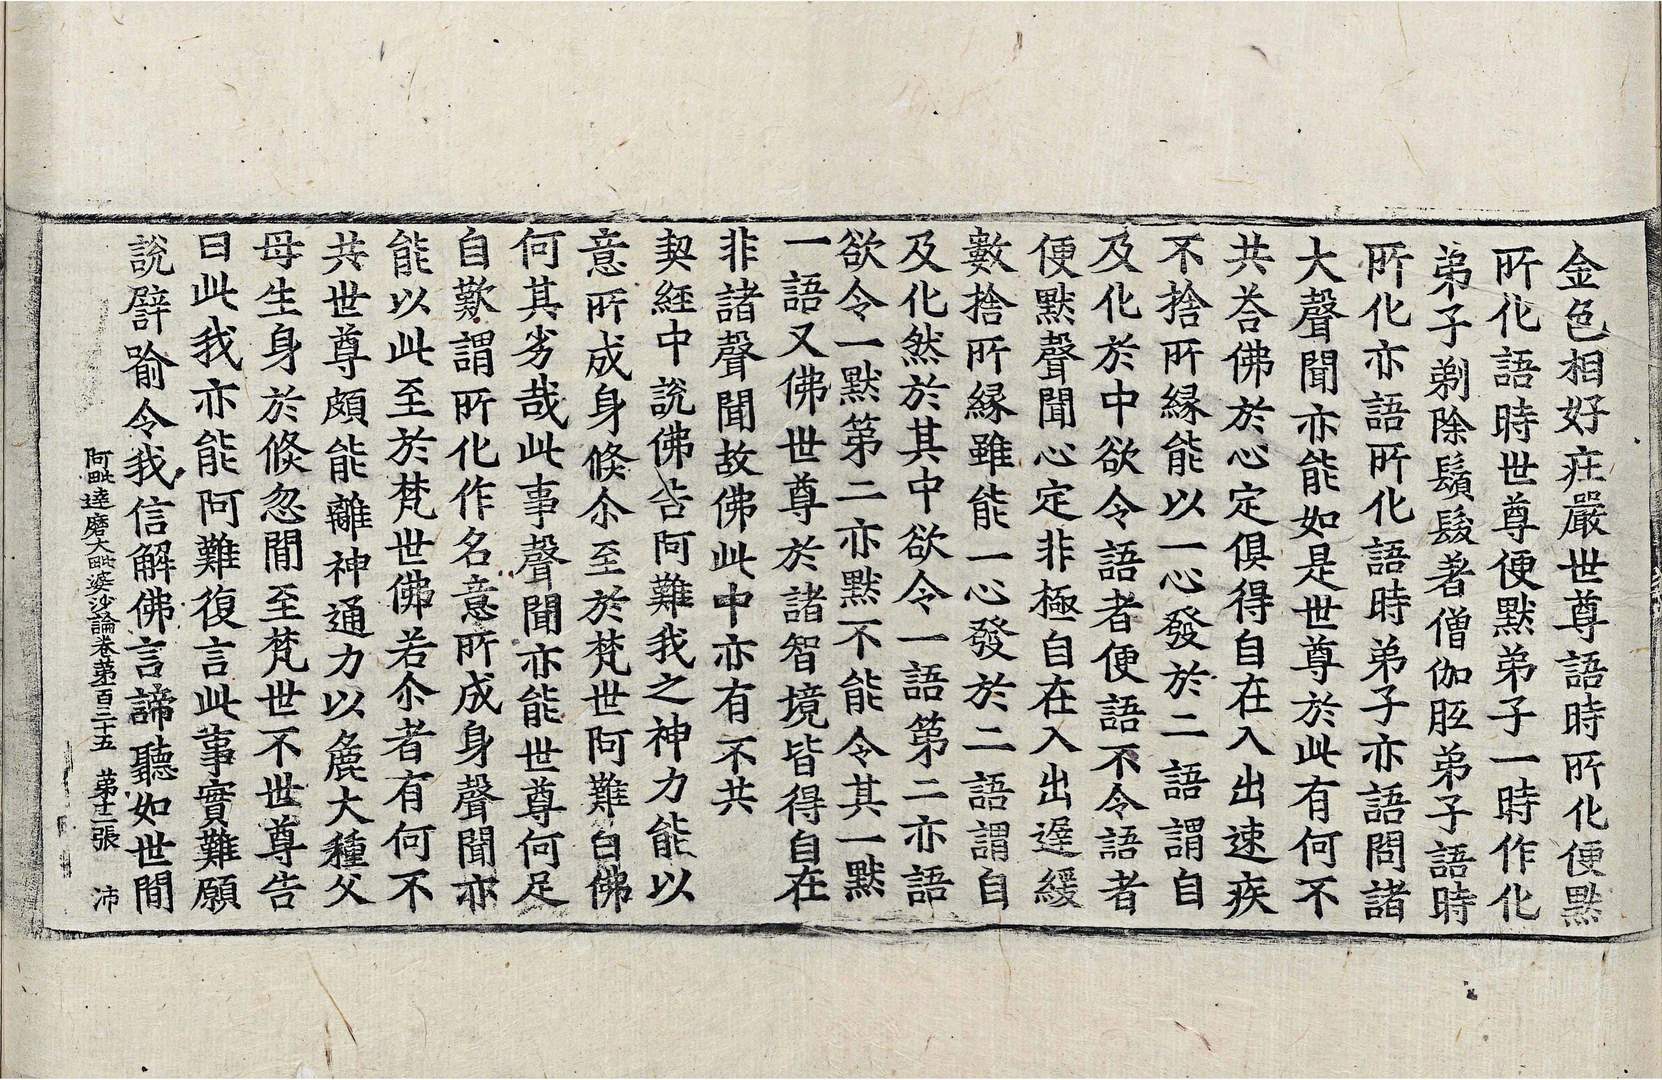 金色相好莊嚴世尊語時所化便黙
所化語時世尊便黙弟子一時作化
弟子剃除鬚髮著僧伽胝弟子語時
所化亦語所化語時弟子亦語問諸
大聲聞亦能如是世尊於此有何不
共荅佛於心定俱得自在入出速疾
不捨所縁能以一心發於二語謂自
及化於中欲令語者便語不令語者
便黙聲聞心定非極自在入出遅緩
數捨所縁雖能一心發於二語謂自
及化然於其中欲令一語第二亦語
欲令一黙第二亦黙不能令其一黙
一語又佛世尊於諸智境皆得自在
非諸聲聞故佛此中亦有不共
契經中說佛告阿難我之神力能以
意所成身倏尒至於梵世阿難白佛
何其劣哉此事聲聞亦能世尊何足
自歎謂所化作名意所成身聲聞亦
能以此至於梵世佛若尒者有何不
共世尊頗能離神通力以麁大種父
母生身於倏忽閒至梵世不世尊告
曰此我亦能阿難復言此事實難願
說譬喻令我信解佛言諦聽如世閒
阿毗達磨大毗婆沙論卷第一百三十五 第十二張 沛